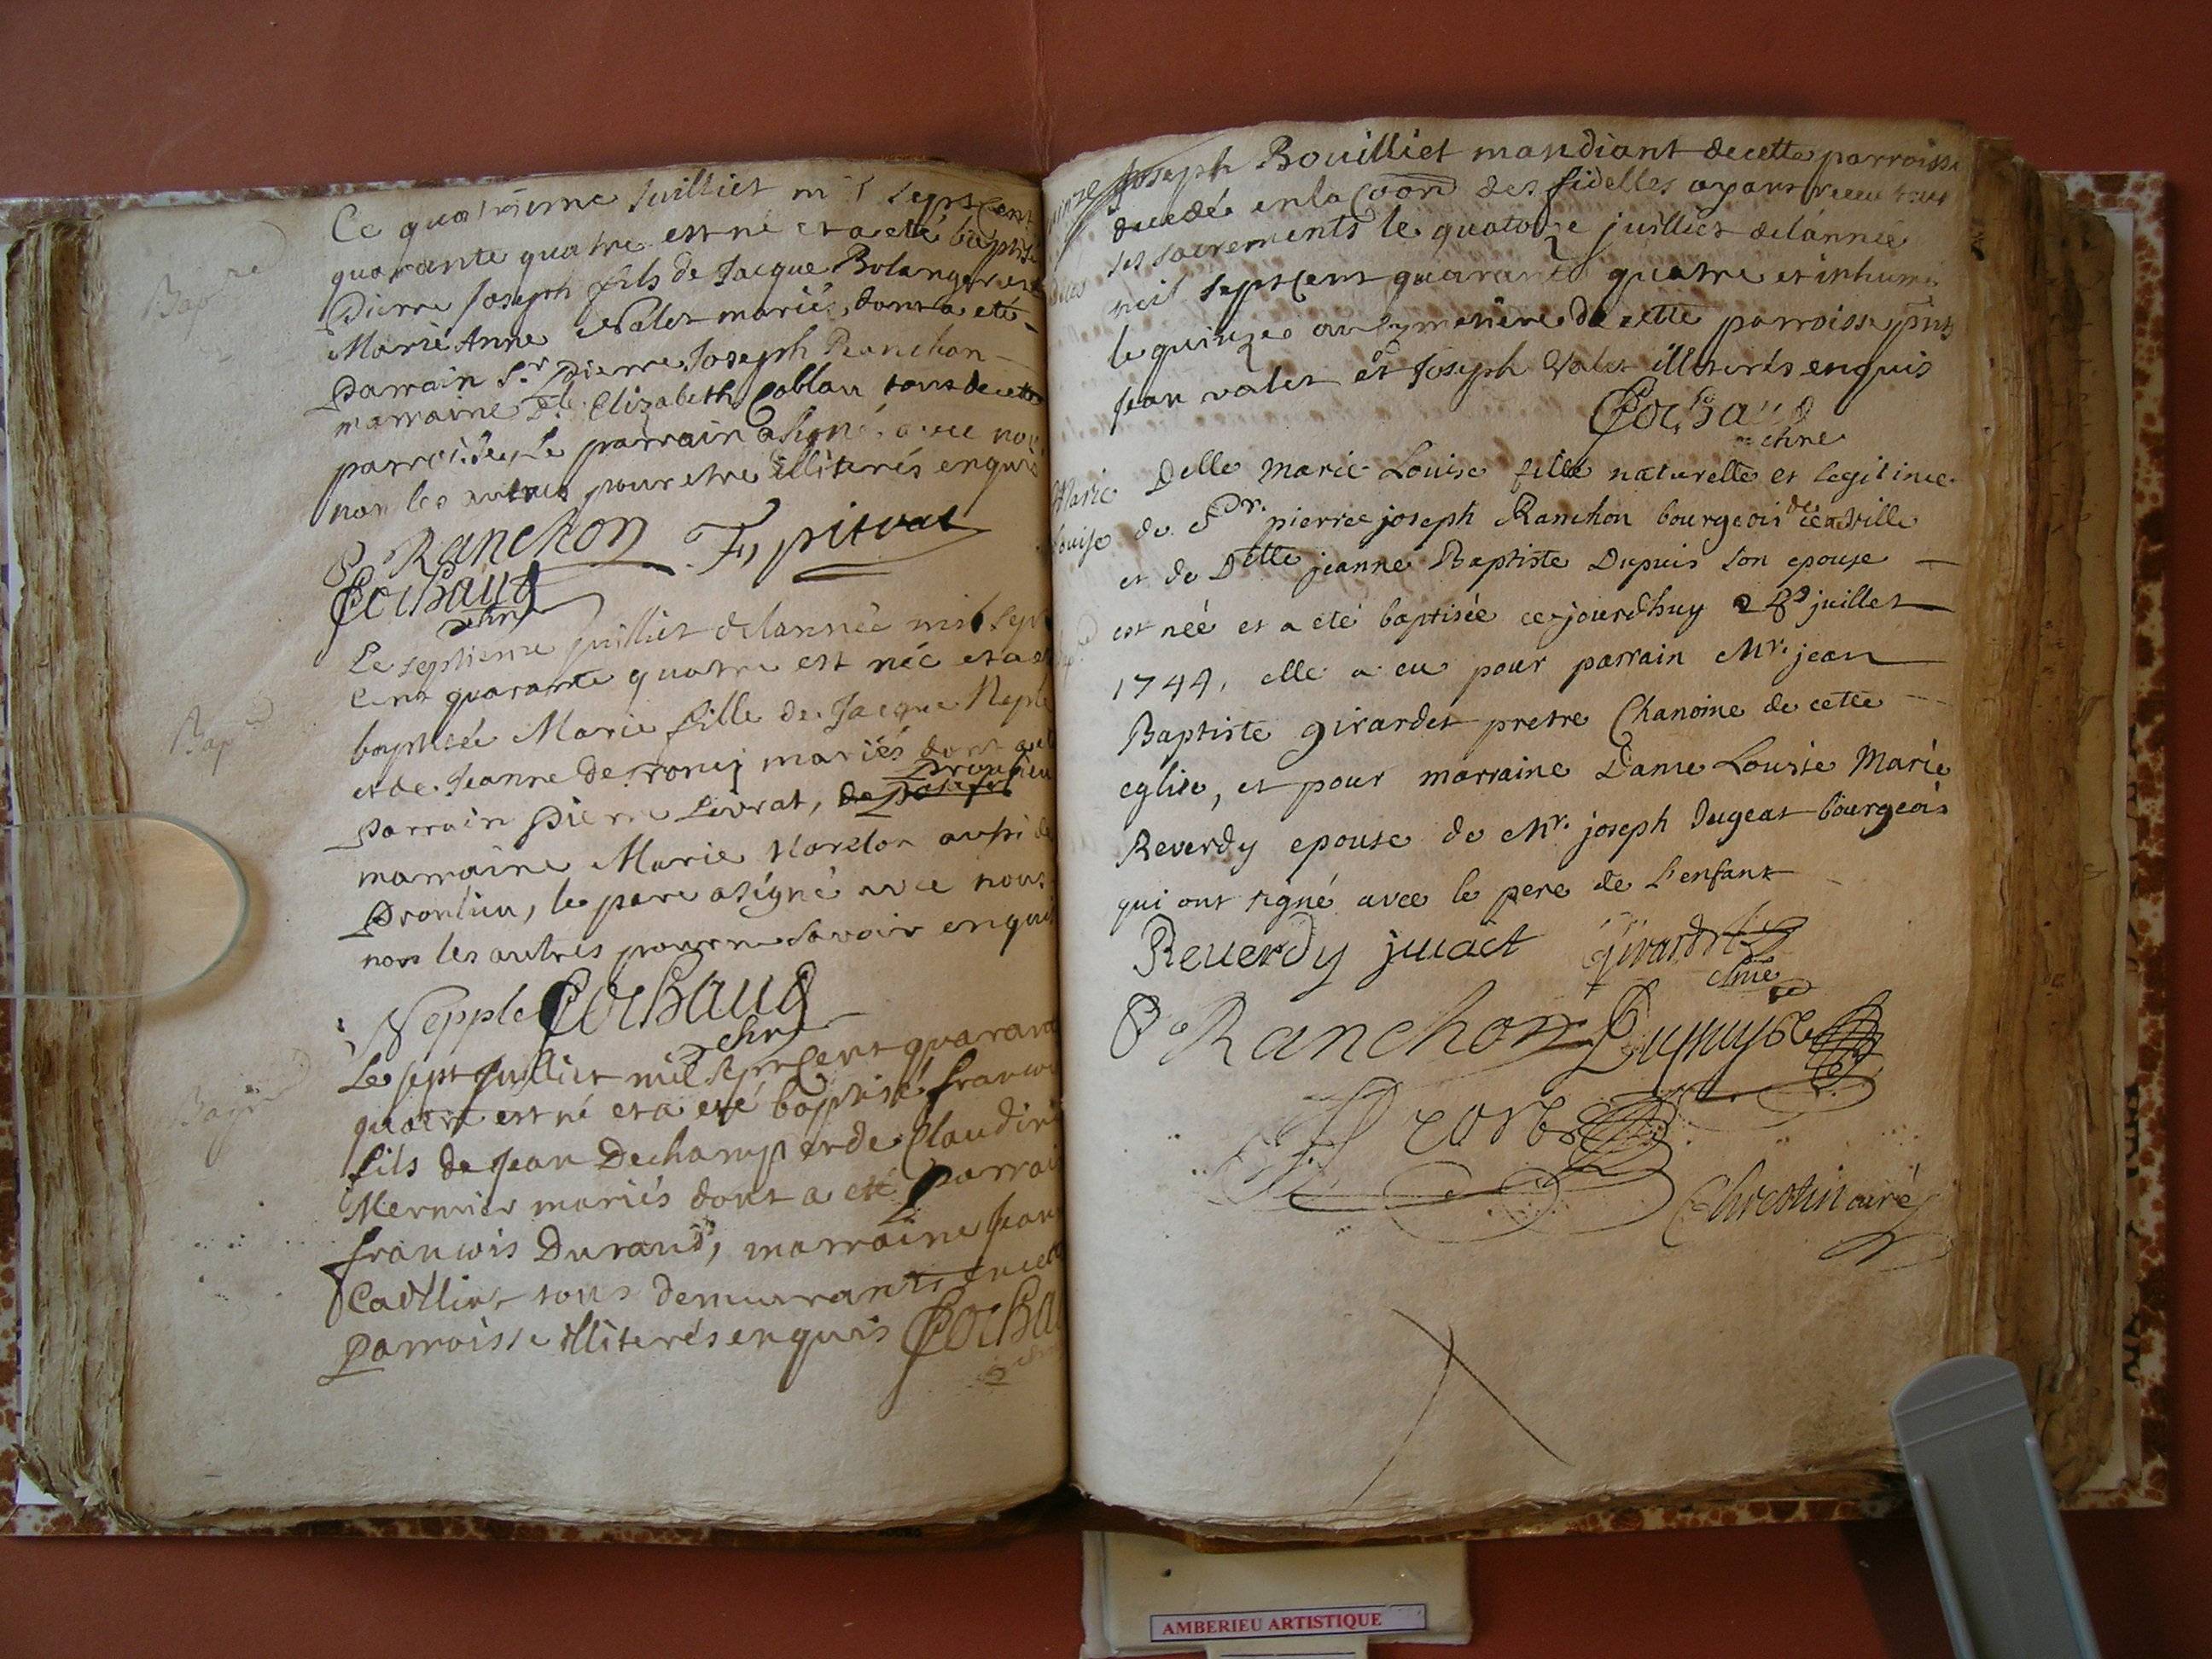 Ce quatrieme Juilliet mil sept cent
quarante quatre est né et a eté baptisé
Pierre Joseph fils de Jacque Bolanger et de
Marie Anne Valet mariés, dont a eté
parrain Sr. Pierre Joseph Ranchon
marraine Dlle Elizabeth tous de cette
parroisse, Le parrain a signé avec nous
non les autres pour etre illiterés enquis
P. Ranchon F, pitrat
Cochaud
chne
Le septieme juilliet de lannée mil sept
Cent quarante quatre est née et a eté
baptisée Marie fille de Jacque Neple
et de Jeanne mariés dont a eté
parrain Pierre Levrat, de Proulieu
marraine Marie aussi de
Proulieu, le pere a signé avec nous
non les autres pour ne savoir enquis
Nepple Cochaud
chne
Le sept Juilliet mil sept Cent quarante
quatre est né et a eté baptisé francois
fils de Jean Dechamp et de Claudine
Mermier mariés dont a eté parrain
francois Durand, marraine
tous demeurants en cette
Parroisse illiterés enquis Cochaud
Joseph Bouilliet mandiant de cette parroisse
decedé en la Coon des fidelles ayant receu tous
ses sacrements le quatorze juilliet de lannée
mil sept Cent quarante quatre et inhumé
le quinze au cymetiere de cette parroisse pnts
Jean valet et Joseph Valet illiterés enquis
Cochaud
chne
Marie Delle Marie Louise fille naturelle et legitime
Louise de Sr. pierre joseph Ranchon bourgeois de cette ville
et de Delle jeanne Baptiste Dupuis son epouse
est née et a eté baptisée ce jourdhuy 28 juillet
1744, elle a eu pour parrain Mr. jean
Baptiste girardet prestre Chanoine de cette
eglise, et pour marraine Dame Louise Marie
Reverdy epouse de Mr. joseph Dugeat bourgeois
qui ont signé avec le pere de l'enfant
Reverdy girardet
chne
P. Ranchon
Chrestin curé
AMBERIEU ARTISTIQUE